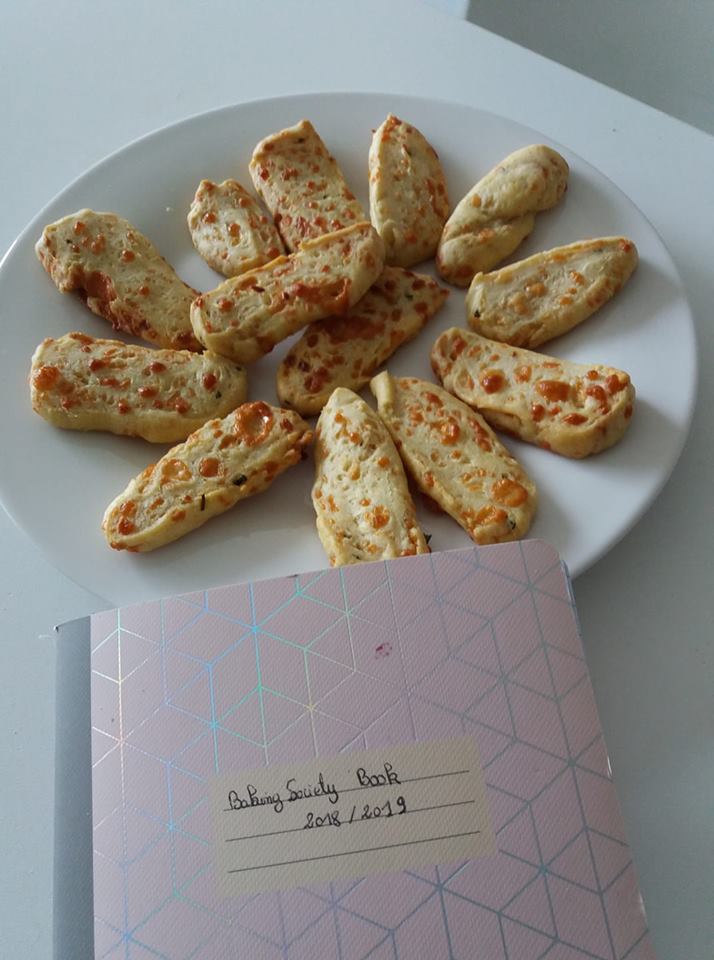 Baking Society Book
2018/2019